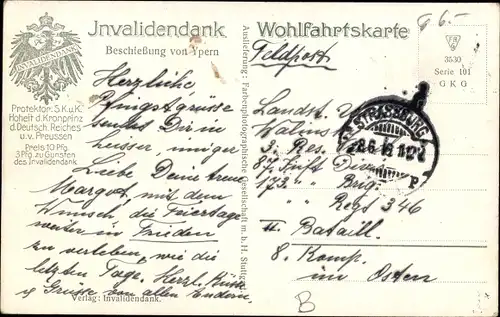 Invalidendank
Wohlfahrtskarte
Beschießung von Ypern
INVALIDENDANK
Protektor: S.K.u.K.
Hoheit d. Kronprinz
d. Deutsch. Reiches
u.v. Preussen
Preis 10 Pfg.
3 Pfg. zu Gunsten
des Invalidendank
Herzliche
Pfingstgrüsse
sendet Dir in
heisser inniger
Liebe Deine treue
Margot, mit dem
Wunsch, die Feiertage
weiter in Frieden
zu verleben, wie die
letzten Tage. Herzl. Küsse
u Grüsse von allen Andern.
Verlag: Invalidendank.
Auslieferung: Farbenphotographische Gesellschaft m. b. H. Stuttgart
3530
Serie 101
G K G
Feldpost
Landst.
STRASSBURG
3. Res.
87. Inft Div
173. " " Brig.
" " Regt 346
II Bataill.
8. Komp.
im Osten
B